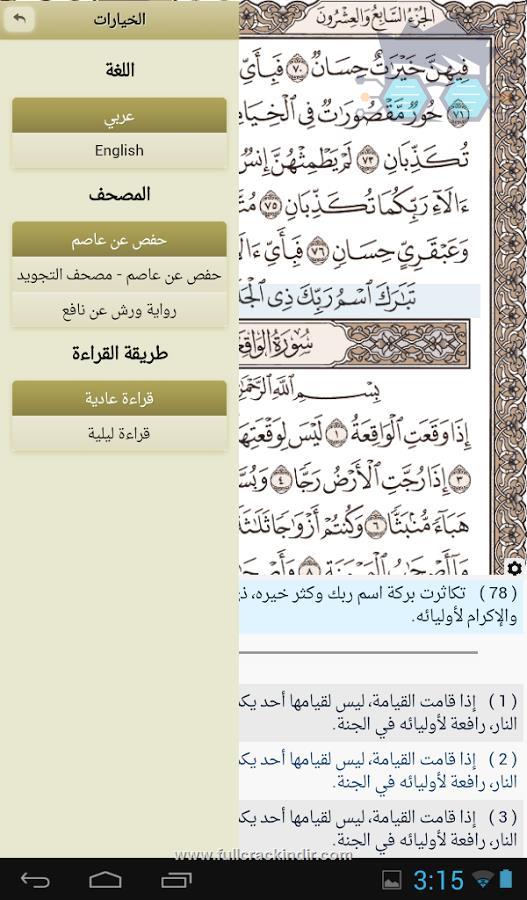 الخيارات
اللغة
عربي
English
المصحف
حفص عن عاصم
حفص عن عاصم - مصحف التجويد
رواية ورش عن نافع
طريقة القراءة
قراءة عادية
قراءة ليلية
الجزء السابع والعشرون
فِيهِنَّ خَيْرَٰتٌ حِسَانٌ ٧٠ فَبِأَيِّ
٧١ حُورٌ مَّقْصُورَٰتٌ فِي ٱلْخِيَامِ
تُكَذِّبَانِ ٧٣ لَمْ يَطْمِثْهُنَّ إِنسٌ
ءَالَآءِ رَبِّكُمَا تُكَذِّبَانِ ٧٥
وَعَبْقَرِيٍّ حِسَانٍ ٧٦ فَبِأَيِّ
تَبَٰرَكَ ٱسْمُ رَبِّكَ ذِي
سُورَةُ
بِسْمِ ٱللَّهِ
إِذَا وَقَعَتِ ٱلْوَاقِعَةُ ١ لَيْسَ لِوَقْعَتِهَا
٣ إِذَا رُجَّتِ ٱلْأَرْضُ رَجًّا ٤
هَبَآءً مُّنۢبَثًّا ٦ وَكُنتُمْ أَزْوَٰجًا
( 78 ) تكاثرت بركة اسم ربك وكثر خيره،
والإكرام لأوليائه.
( 1 ) إذا قامت القيامة، ليس لقيامها أحد
النار، رافعة لأوليائه في الجنة.
( 2 ) إذا قامت القيامة، ليس لقيامها أحد
النار، رافعة لأوليائه في الجنة.
( 3 ) إذا قامت القيامة، ليس لقيامها أحد
النار، رافعة لأوليائه في الجنة.
www.fullcrackindir.com
3:15